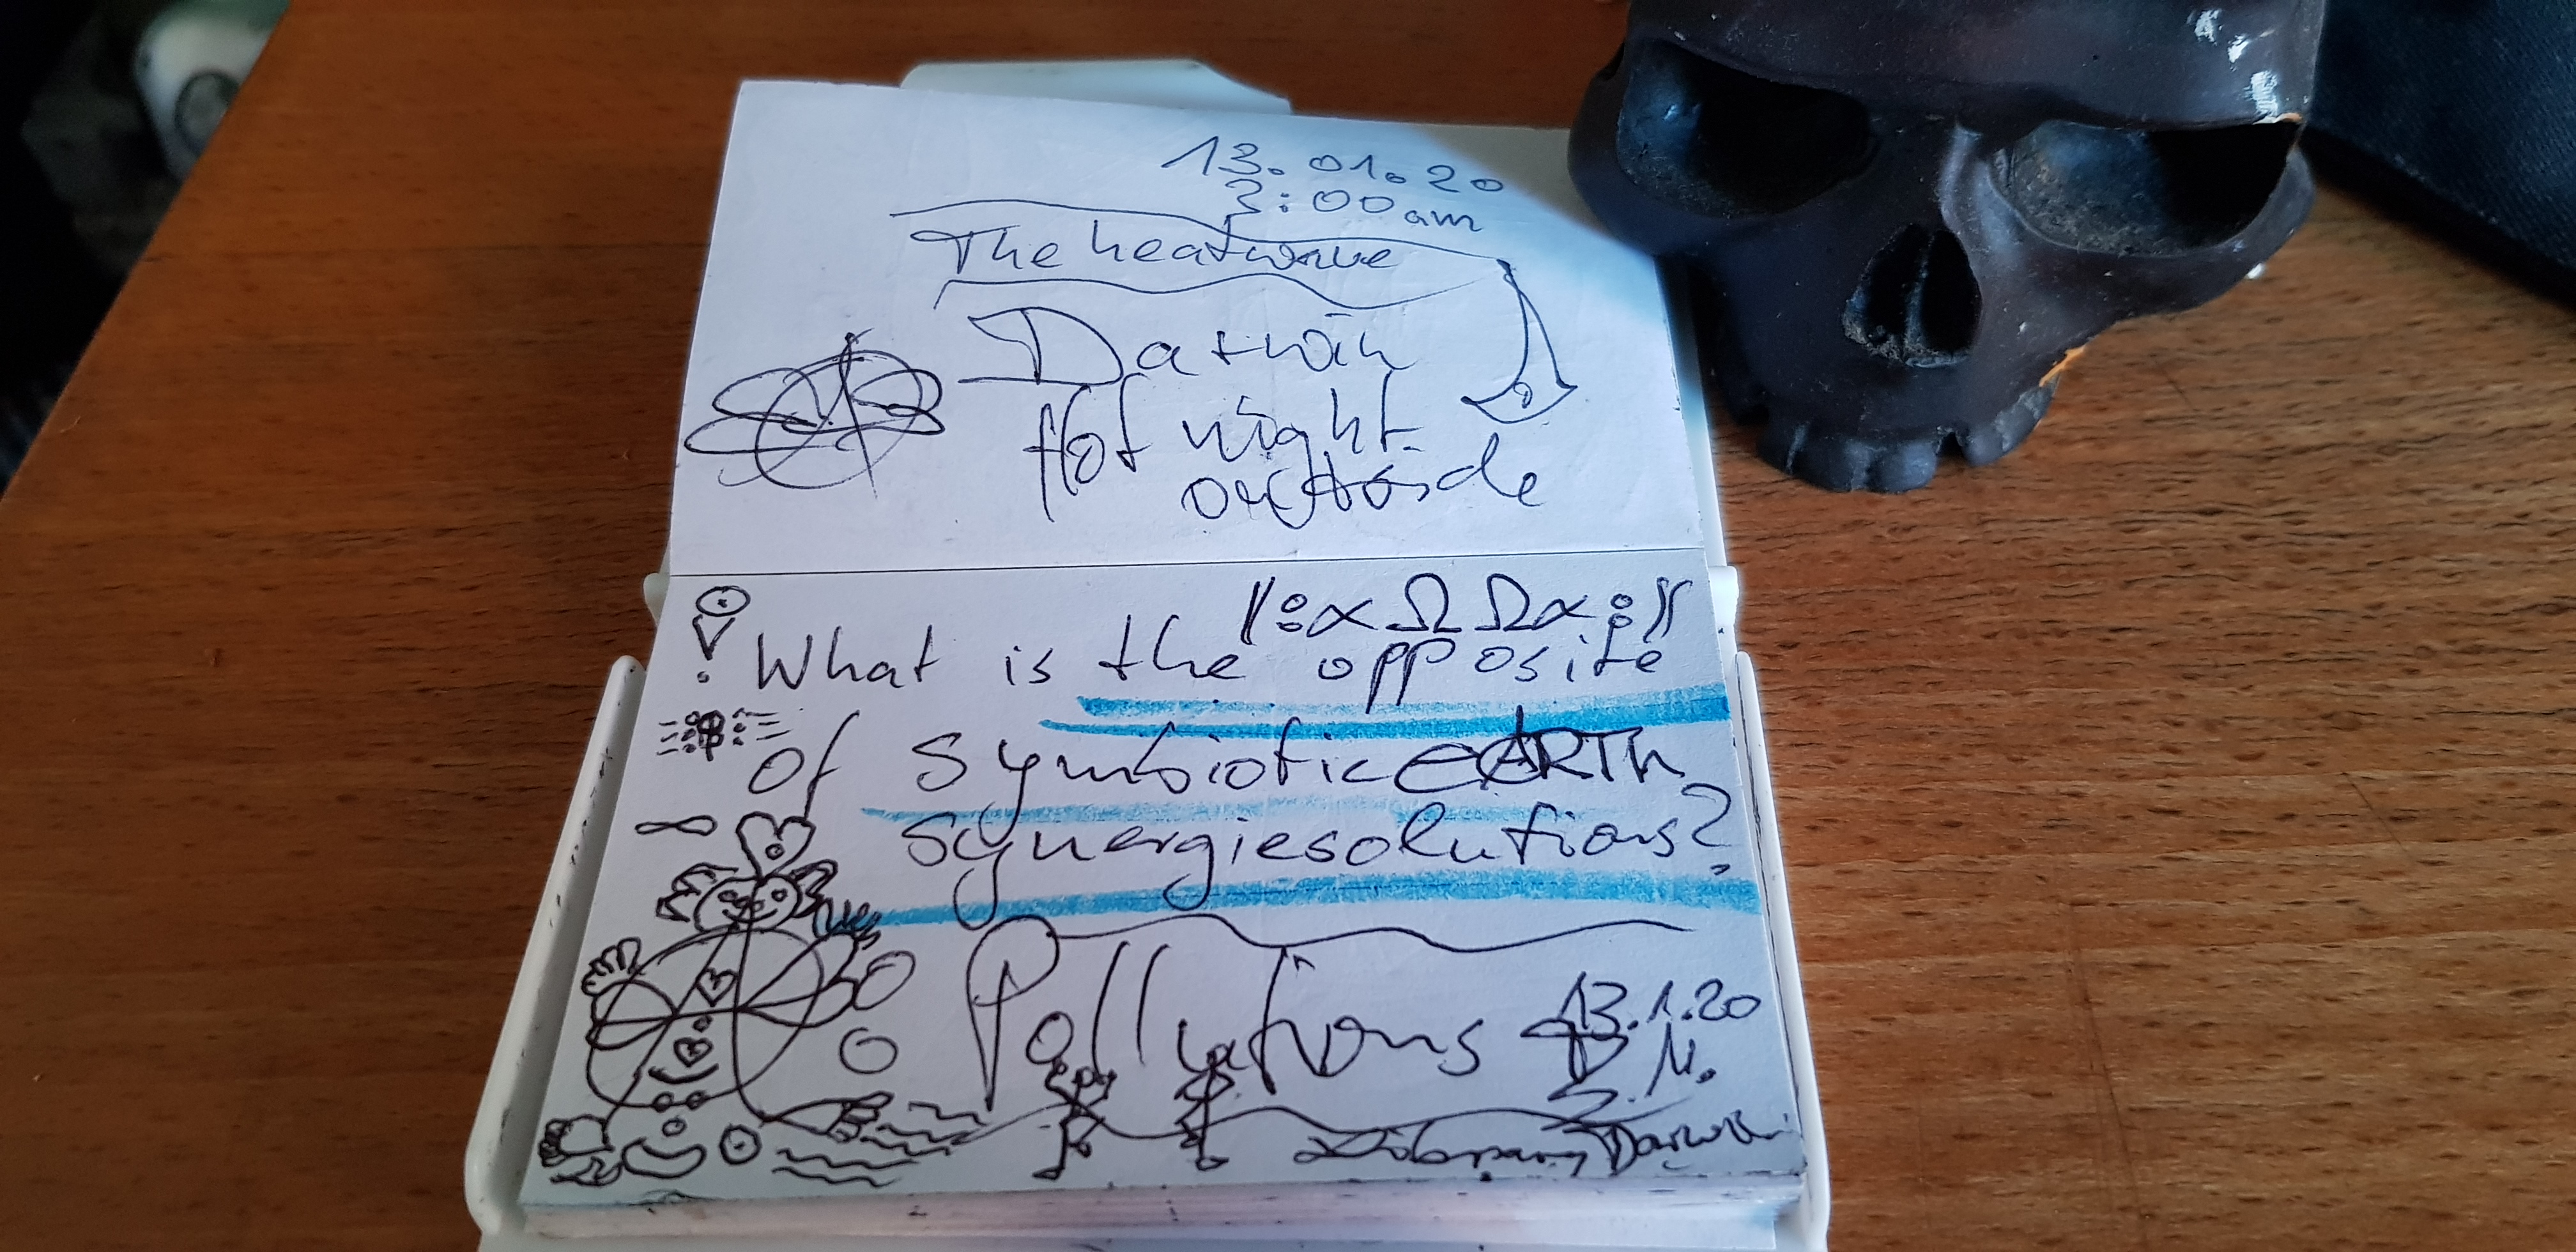 13.01.20
3:00am
The heatwave
Darwin
Hot night
outside
𝄆 α Ω Ω α 𝄇
What is the opposite
of symbiotic eARTh
synergiesolutions?
Pollutions
13.1.20
Library Darwin